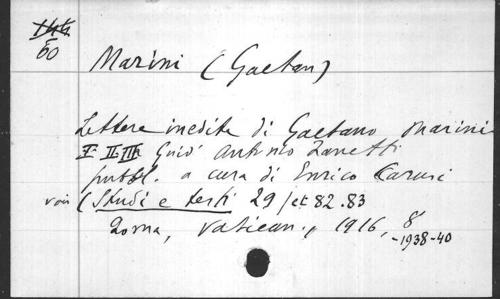 60
Marini (Gaetan)
Lettere inedite di Gaetano Marini
I-II-III Guid' Antonio Zanetti
publ. a cura di Enrico Carusi
voir (Studi e testi 29 / et 82.83
Roma, Vatican., 1916, 8°
-1938-40